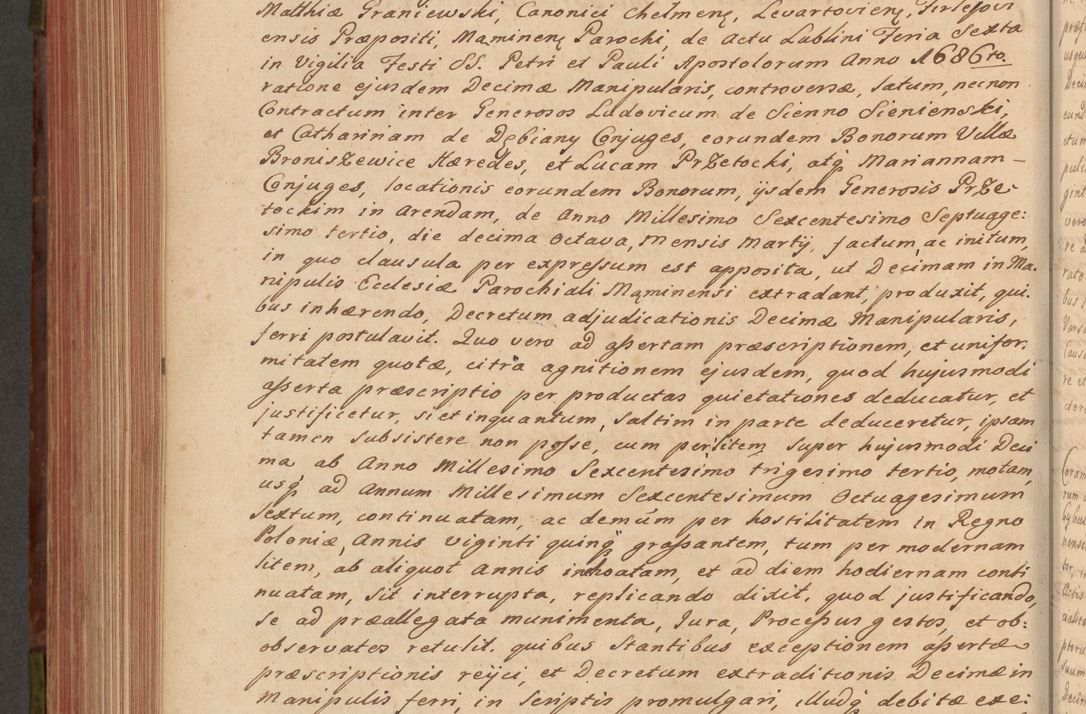 Matthiæ Graniewski, Canonici Chelmenę, Levartovienę, Firlejovi
ensis Præpositi, Mąminenę Parochi, de Actu Lublini Feria Sexta
in Vigilia Festi SS. Petri et Pauli Apostolorum Anno 1686to.
ratione ejusdem Decimæ Manipularis, controversæ, latum, necnon
Contractum inter Generosos Ludovicum de Sienno Sienienski,
et Catharinam de Dębiany Conjuges, eorundem Bonorum Villæ
Broniszewice Hæredes, et Lucam Przetocki, atq́ Mariannam –
Conjuges, locationis eorundem Bonorum, ijsdem Generosis Prze-
tockim in Arendam, de Anno Millesimo Sexcentesimo Septuage:
simo tertio, die decima Octava, Mensis Martij, factum, ac initum,
in quo clausula per expressum est apposita, ut Decimam in Ma.
nipulis Ecclesiæ Parochiali Mąminensi extradant, produxit, qui.
bus inhærendo, Decretum adjudicationis Decimæ Manipularis,
ferri postulavit. Quo vero ad assertam præscriptionem, et unifor.
mitatem quotæ, citra agnitionem ejusdem, quod hujusmodi
asserta præscriptio per productas quietationes deducatur, et
justificetur, si et inquantum, saltim in parte deduceretur, ipsam
tamen subsistere non posse, cum per litem super hujusmodi Deci
ma ab Anno Millesimo Sexcentesimo trigesimo tertio, motam,
usq́ ad Annum Millesimum Sexcentesimum Octuagesimum
Sextum, continuatam, ac demúm per hostilitatem in Regno
Poloniæ, Annis viginti quinq́ grassantem, tum per modernam
litem, ab aliquot Annis inchoatam, et ad diem hodiernam conti
nuatam, sit interrupta, replicando dixit, quod justificando,
se ad præallegata munimenta, Jura, Processus gestos, et ob:
observatos retulit. quibus stantibus exceptionem assertæ
præscriptionis reijci, et Decretum extraditionis Decimæ in
Manipulis ferri, in scriptis promulgari, illudq́ debitæ exe: